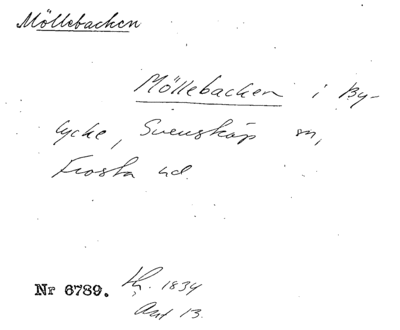 Möllebacken
Möllebacken i By-
lycke, Svensköp sn,
Frosta hd.
Nr 6789. 1834
13.